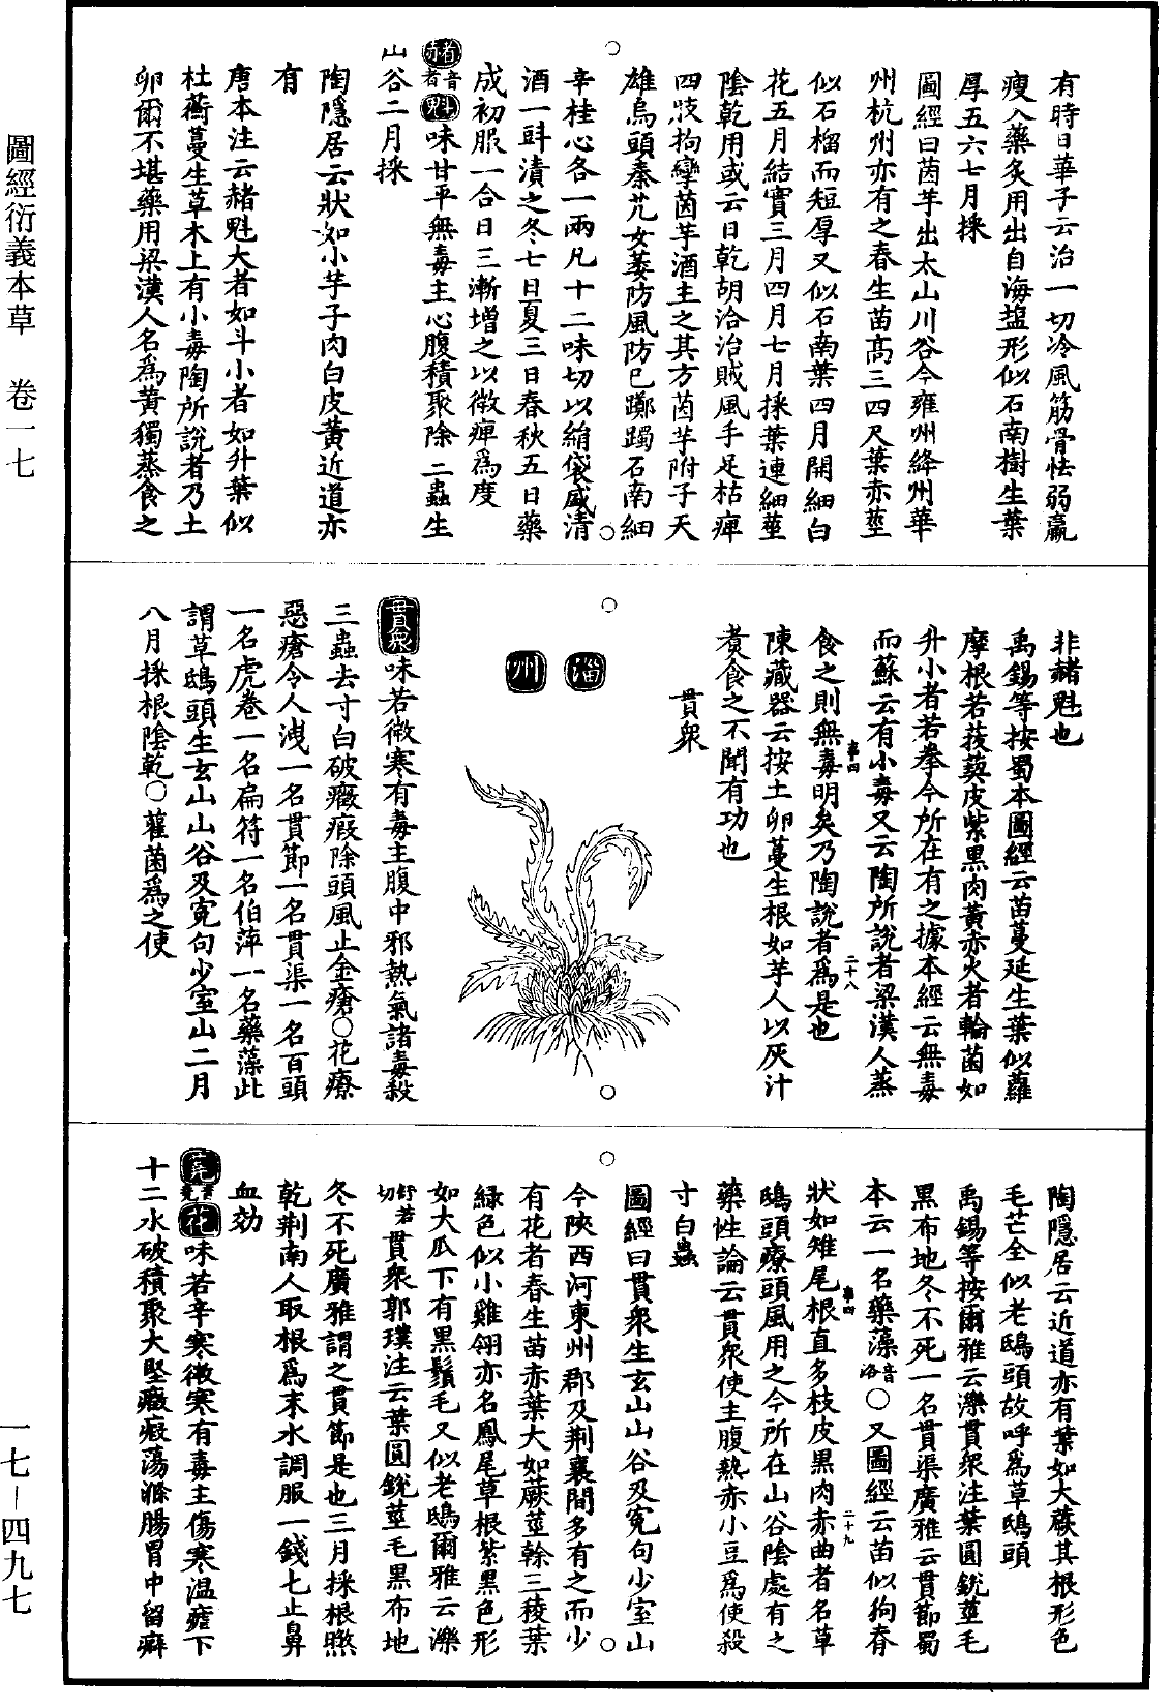 圖經衍義本草　卷一七
一七－四九七
有時日華子云治一切冷風筋骨怯弱羸
瘦入藥炙用出自海鹽形似石南樹生葉
厚五六七月採
圖經曰茵芋出太山川谷今雍州絳州華
州杭州亦有之春生苗高三四尺葉赤莖
似石榴而短厚又似石南葉四月開細白
花五月結實三月四月七月採葉連細莖
陰乾用或云日乾胡洽治賊風手足枯痺
四肢拘攣茵芋酒主之其方茵芋附子天
雄烏頭秦艽女萎防風防已躑躅石南細
辛桂心各一兩凡十二味切以絹袋盛清
酒一㪷漬之冬七日夏三日春秋五日藥
成初服一合日三漸增之以微痺為度
赭音者魁味甘平無毒主心腹積聚除三蟲生
山谷二月採
陶隱居云狀如小芋子肉白皮黃近道亦
有
唐本注云赭魁大者如斗小者如升葉似
杜蘅蔓生草木上有小毒陶所說者乃土
卵爾不堪藥用梁漢人名為黃獨蒸食之
非赭魁也
禹錫等按蜀本圖經云苗蔓延生葉似蘿
摩根若菝葜皮紫黑肉黃赤火者輪菌如
升小者若拳今所在有之據本經云無毒
而蘇云有小毒又云陶所說者梁漢人蒸
食之則無毒明矣乃陶說者為是也
陳藏器云按土卵蔓生根如芋人以灰汁
煑食之不聞有功也
貫衆
淄州
貫衆味苦微寒有毒主腹中邪熱氣諸毒殺
三蟲去寸白破癥瘕除頭風止金瘡○花療
惡瘡令人洩一名貫節一名貫渠一名百頭
一名虎卷一名扁符一名伯萍一名藥藻此
謂草鴟頭生玄山山谷及寃句少室山二月
八月採根陰乾○雚菌為之使
陶隱居云近道亦有葉如大蕨其根形色
毛芒全似老鴟頭故呼為草鴟頭
禹錫等按爾雅云濼貫衆注葉圓銳莖毛
黑布地冬不死一名貫渠廣雅云貫節蜀
本云一名藥藻音洛○又圖經云苗似狗脊
狀如雉尾根直多枝皮黑肉赤曲者名草
鴟頭療頭風用之今所在山谷陰處有之
藥性論云貫衆使主腹熱赤小豆為使殺
寸白蟲
圖經曰貫衆生玄山山谷及寃句少室山
今陝西河東州郡及荆襄間多有之而少
有花者春生苗赤葉大如蕨莖幹三稜葉
綠色似小雞翎亦名鳳尾草根紫黑色形
如大瓜下有黑鬚毛又似老鴟爾雅云濼
舒若切貫衆郭璞注云葉圓銳莖毛黑布地
冬不死廣雅謂之貫節是也三月採根㬠
乾荆南人取根為末水調服一錢七止鼻
血効
蕘音堯花味苦辛寒微寒有毒主傷寒温瘧下
十二水破積聚大堅癥瘕蕩滌腸胃中留癖